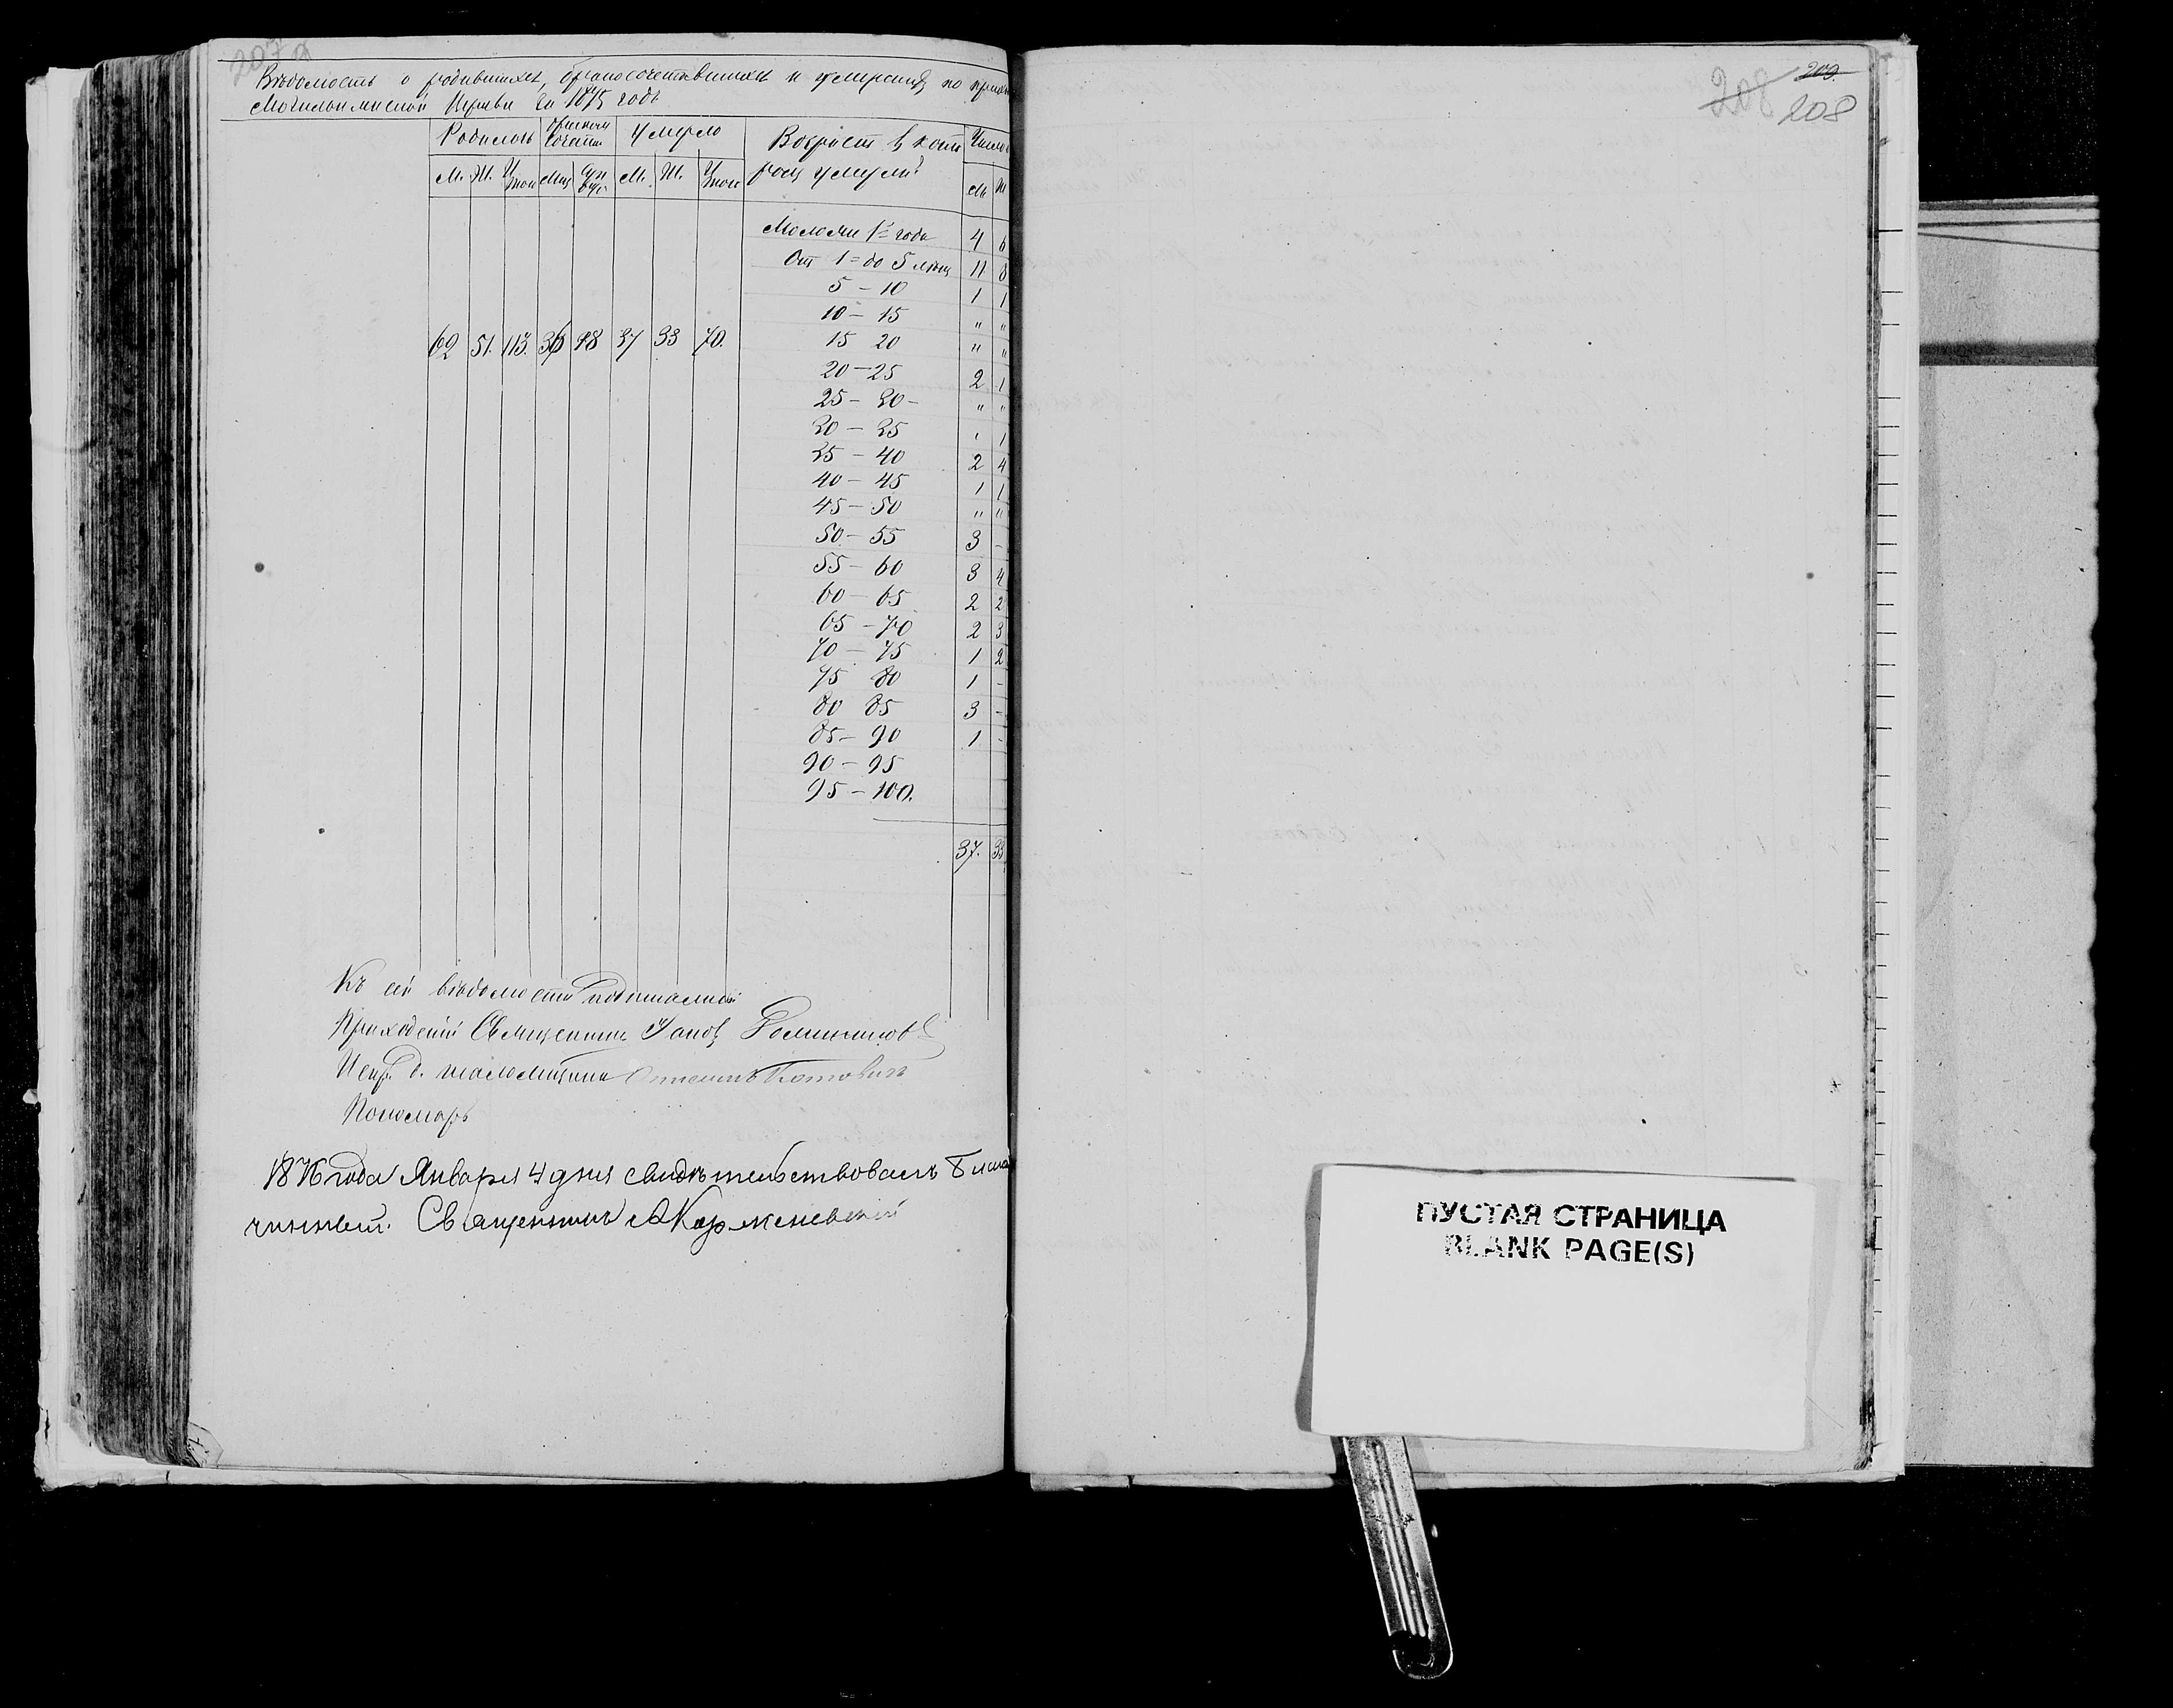 207 об
Вѣдомость о родившихся, бракосочетавшихся и умершихъ по приход
Могильнянской Церкви за 1875 годъ
Родилось Умерло Возрастъ въ кото Число
М. Ж. Итого М. Ж. Итого ромъ умерли М Ж
62 51. 113. 36 18 37 33 70.
Моложе 1 года 4 6
От 1 = до 5 лѣтъ 11 8
5 – 10 1 1
10 – 15 " "
15 20 " "
20 – 25 2 1
25 – 30 – " "
30 – 35 " 1
35 – 40 2 4
40 – 45 1 1
45 – 50 " "
50 – 55 3 -
55 – 60 3 4
60 – 65 2 2
65 – 70 2 3
70 – 75 1 2
75 80 1 -
80 85 3 -
85 – 90 1 -
90 – 95
95 – 100.
37. 33
Къ сей вѣдомости подписались
Приходскій Священникъ
Испр. д. псаломщика
Пономарь
1876 года Января 4 дня свидѣтельствовалъ Благо
чинный Священникъ
208 209.
208
ПУСТАЯ СТРАНИЦА
BLANK PAGE(S)